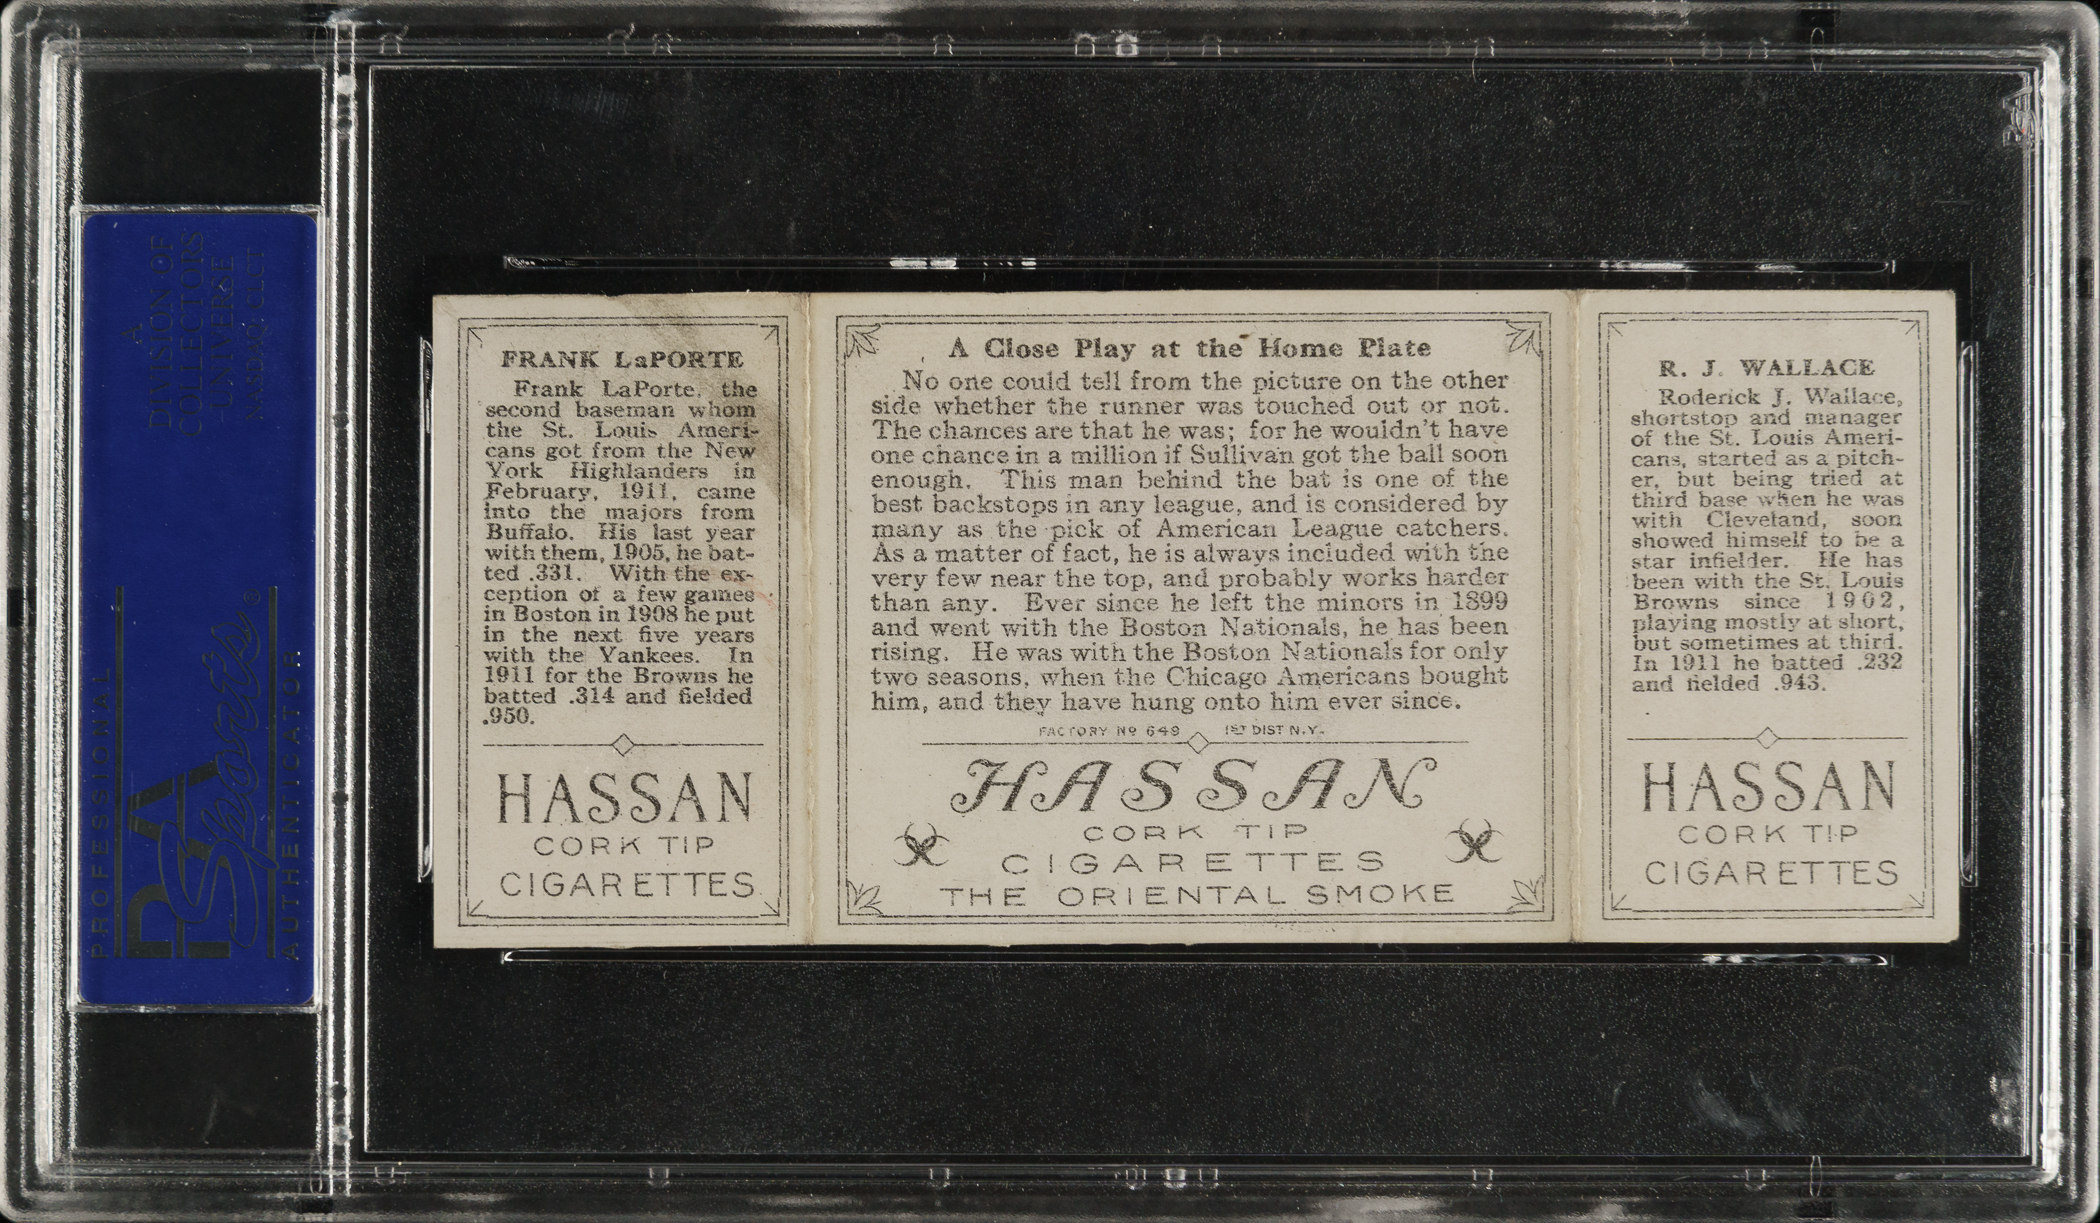 A
DIVISION OF
COLLECTORS
UNIVERSE
NASDAQ: CLCT
PROFESSIONAL
PSA
Sports®
AUTHENTICATOR
FRANK LaPORTE
Frank LaPorte, the
second baseman whom
the St. Louis Ameri-
cans got from the New
York Highlanders in
February, 1911, came
into the majors from
Buffalo. His last year
with them, 1905, he bat-
ted .331. With the ex-
ception of a few games
in Boston in 1908 he put
in the next five years
with the Yankees. In
1911 for the Browns he
batted .314 and fielded
.950.
HASSAN
CORK TIP
CIGARETTES
A Close Play at the Home Plate
No one could tell from the picture on the other
side whether the runner was touched out or not.
The chances are that he was; for he wouldn't have
one chance in a million if Sullivan got the ball soon
enough. This man behind the bat is one of the
best backstops in any league, and is considered by
many as the pick of American League catchers.
As a matter of fact, he is always included with the
very few near the top, and probably works harder
than any. Ever since he left the minors in 1899
and went with the Boston Nationals, he has been
rising. He was with the Boston Nationals for only
two seasons, when the Chicago Americans bought
him, and they have hung onto him ever since.
FACTORY Nº 649 1ST DIST N.Y.
HASSAN
CORK TIP
CIGARETTES
THE ORIENTAL SMOKE
R. J. WALLACE
Roderick J. Wallace,
shortstop and manager
of the St. Louis Ameri-
cans, started as a pitch-
er, but being tried at
third base when he was
with Cleveland, soon
showed himself to be a
star infielder. He has
been with the St. Louis
Browns since 1902,
playing mostly at short,
but sometimes at third.
In 1911 he batted .232
and fielded .943.
HASSAN
CORK TIP
CIGARETTES
PSA